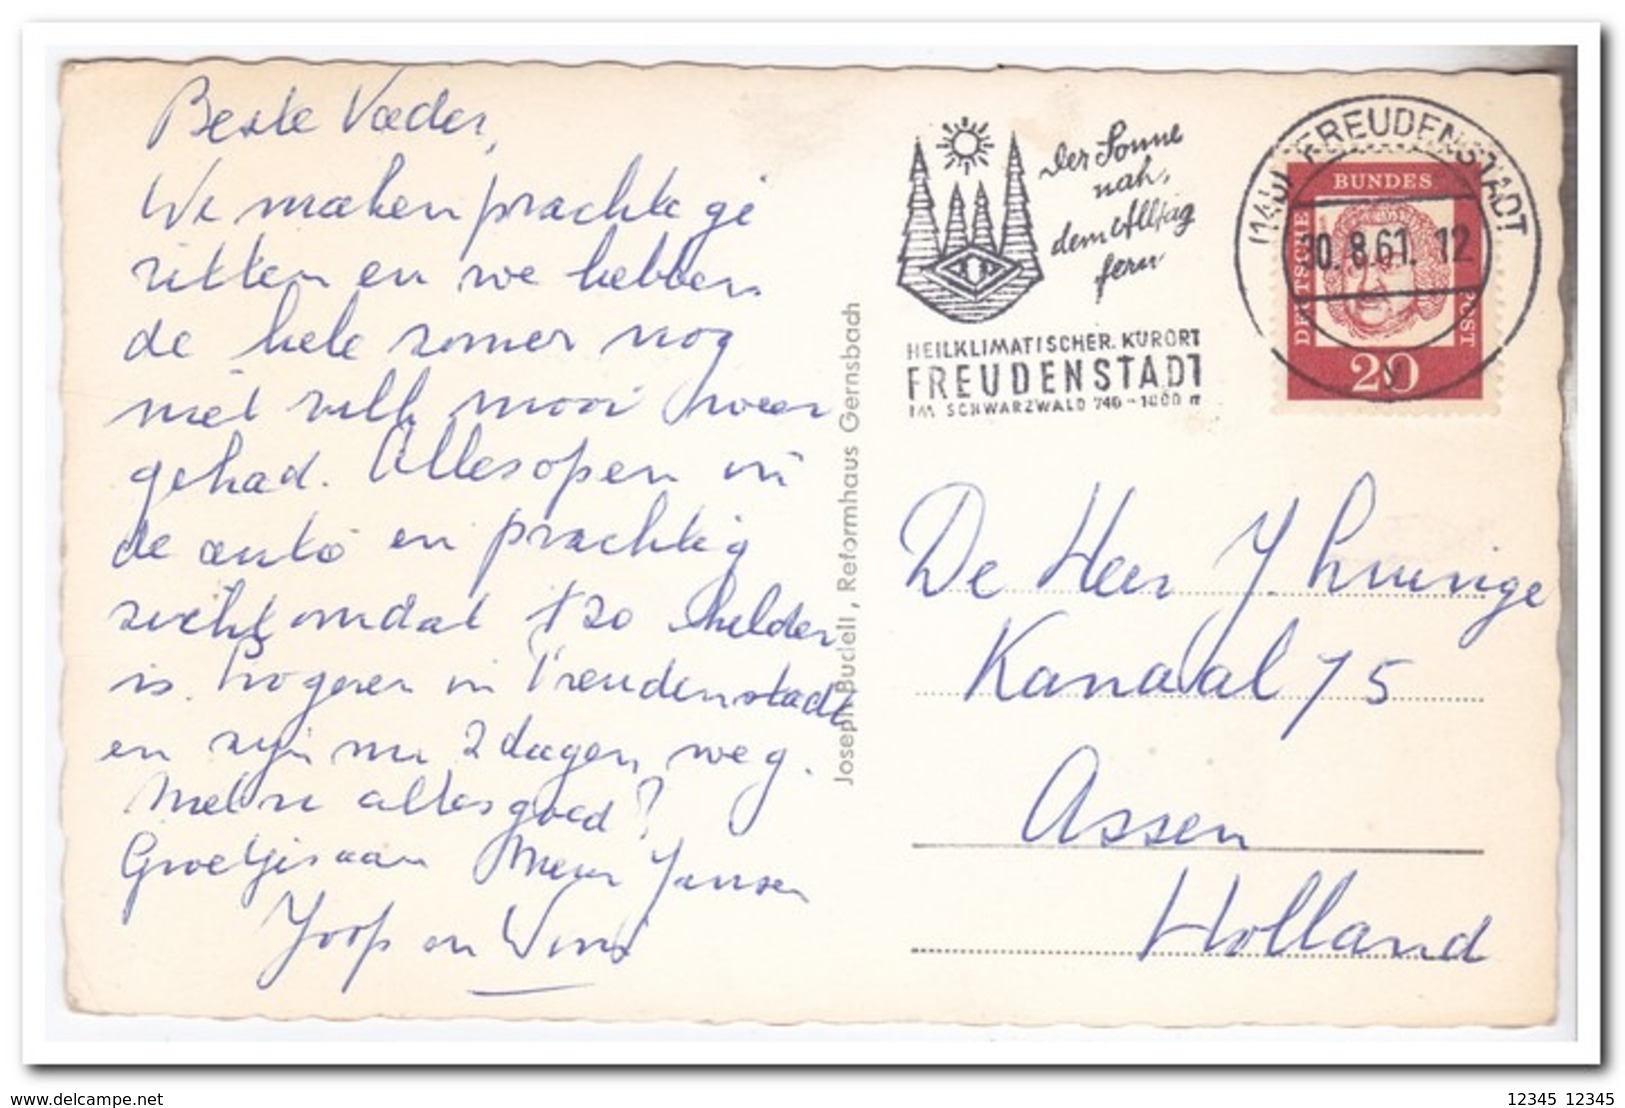 Beste Vader,
We maken prachtige
ritten en we hebben
de hele zomer nog
niet zulk mooi weer
gehad. Alles open in
de auto en prachtig
zicht omdat 't zo helder
is. Logeren in Freudenstadt
en zijn nu 2 dagen weg.
Met u alles goed?
Groetjes aan Mevr Jansen
Joop en
Joseph Budell, Reformhaus Gernsbach
Der Sonne
nah,
dem Alltag
fern
HEILKLIMATISCHER KURORT
FREUDENSTADT
IM SCHWARZWALD 740 - 1000 m
FREUDENSTADT
30.8.61. 12
DEUTSCHE BUNDESPOST
20
De Heer J.
Kanaal 75
Assen
Holland
delcampe.net
12345 12345